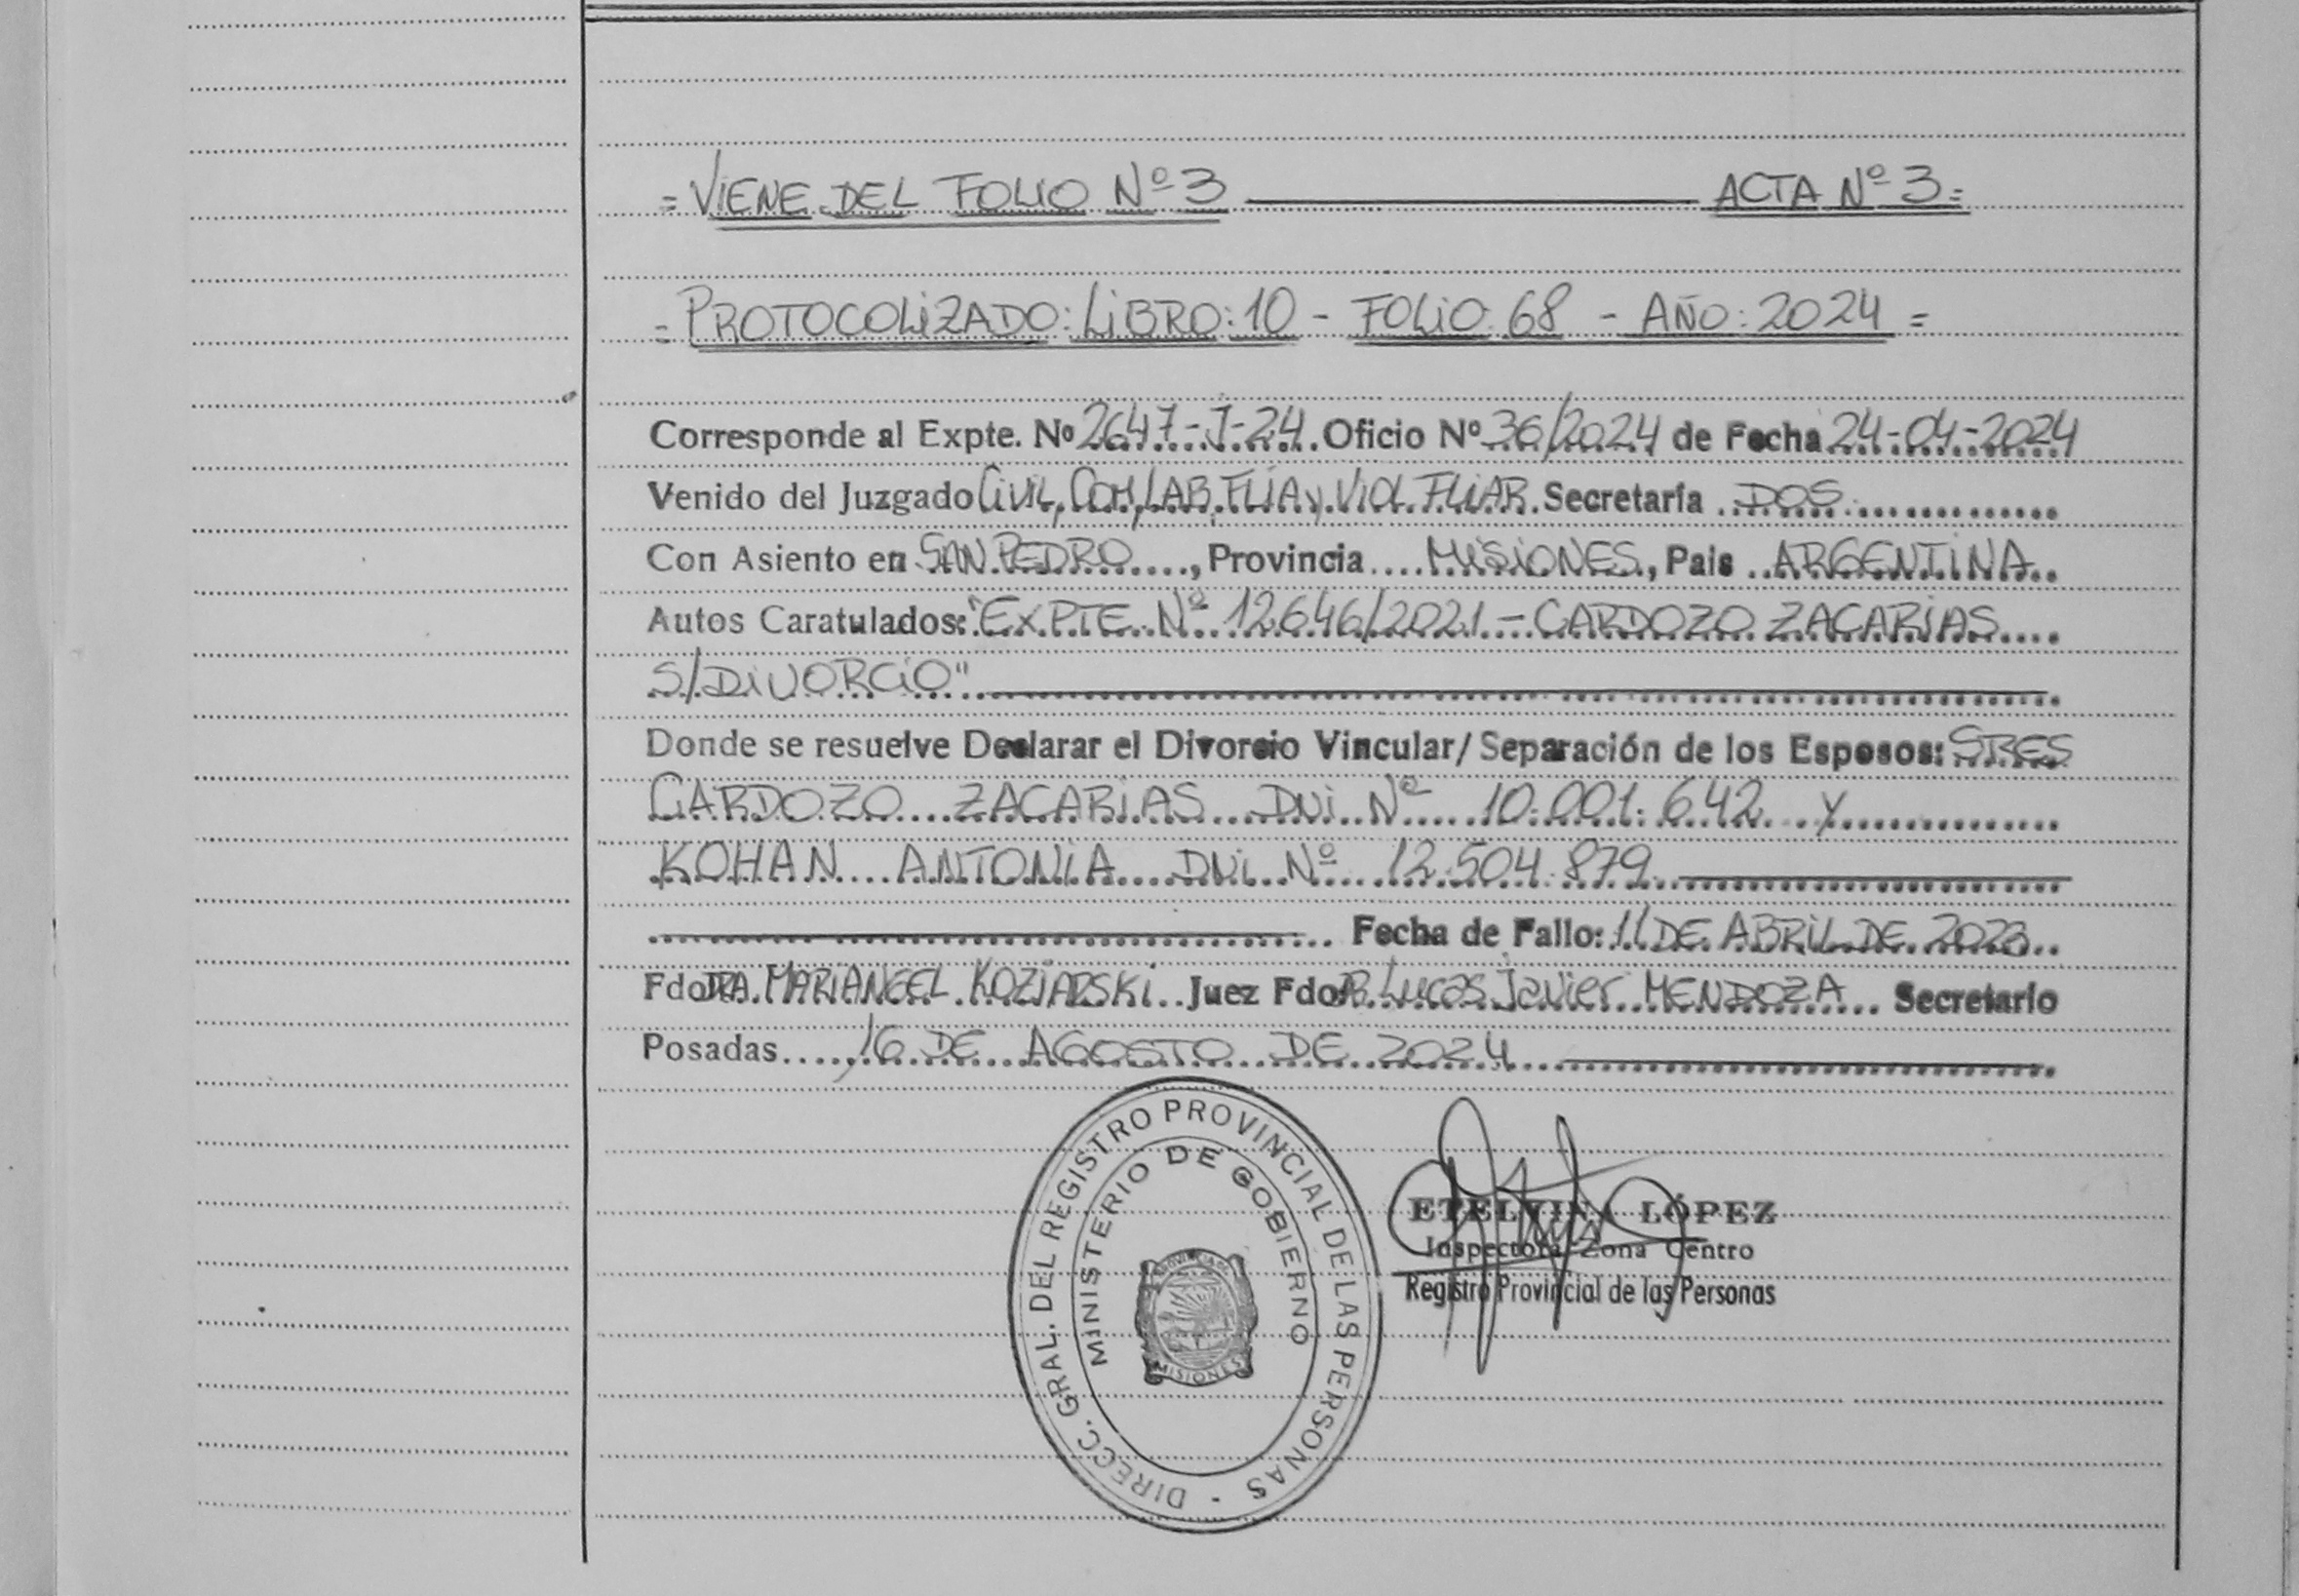 = VIENE DEL FOLIO Nº 3 ACTA Nº 3 =
= PROTOCOLIZADO: LIBRO: 10 - FOLIO: 68 - AÑO: 2024 =
Corresponde al Expte. Nº 2647-J-24. Oficio Nº 36/2024 de Fecha 24-04-2024
Venido del Juzgado Civil, Com, LAB, FLIA y Viol. FLIAR. Secretaría DOS
Con Asiento en SAN PEDRO, Provincia MISIONES, Pais ARGENTINA
Autos Caratulados: "EXPTE Nº 12646/2021 - CARDOZO ZACARIAS
S/DIVORCIO"
Donde se resuelve Declarar el Divorcio Vincular/ Separación de los Esposos: SRES
CARDOZO ZACARIAS DNI Nº 10.001.642 y
KOHAN ANTONIA DNI Nº 12.504.879
Fecha de Fallo: 11 DE ABRIL DE 2023
Fdo DRA. MARIANGEL KOZIARSKI Juez Fdo DR. Lucas Javier MENDOZA Secretario
Posadas, 16 DE AGOSTO DE 2024
DIRECC. GRAL. DEL REGISTRO PROVINCIAL DE LAS PERSONAS -
MINISTERIO DE GOBIERNO
MISIONES
ETELVINA LÓPEZ
Inspectora Zona Centro
Registro Provincial de las Personas